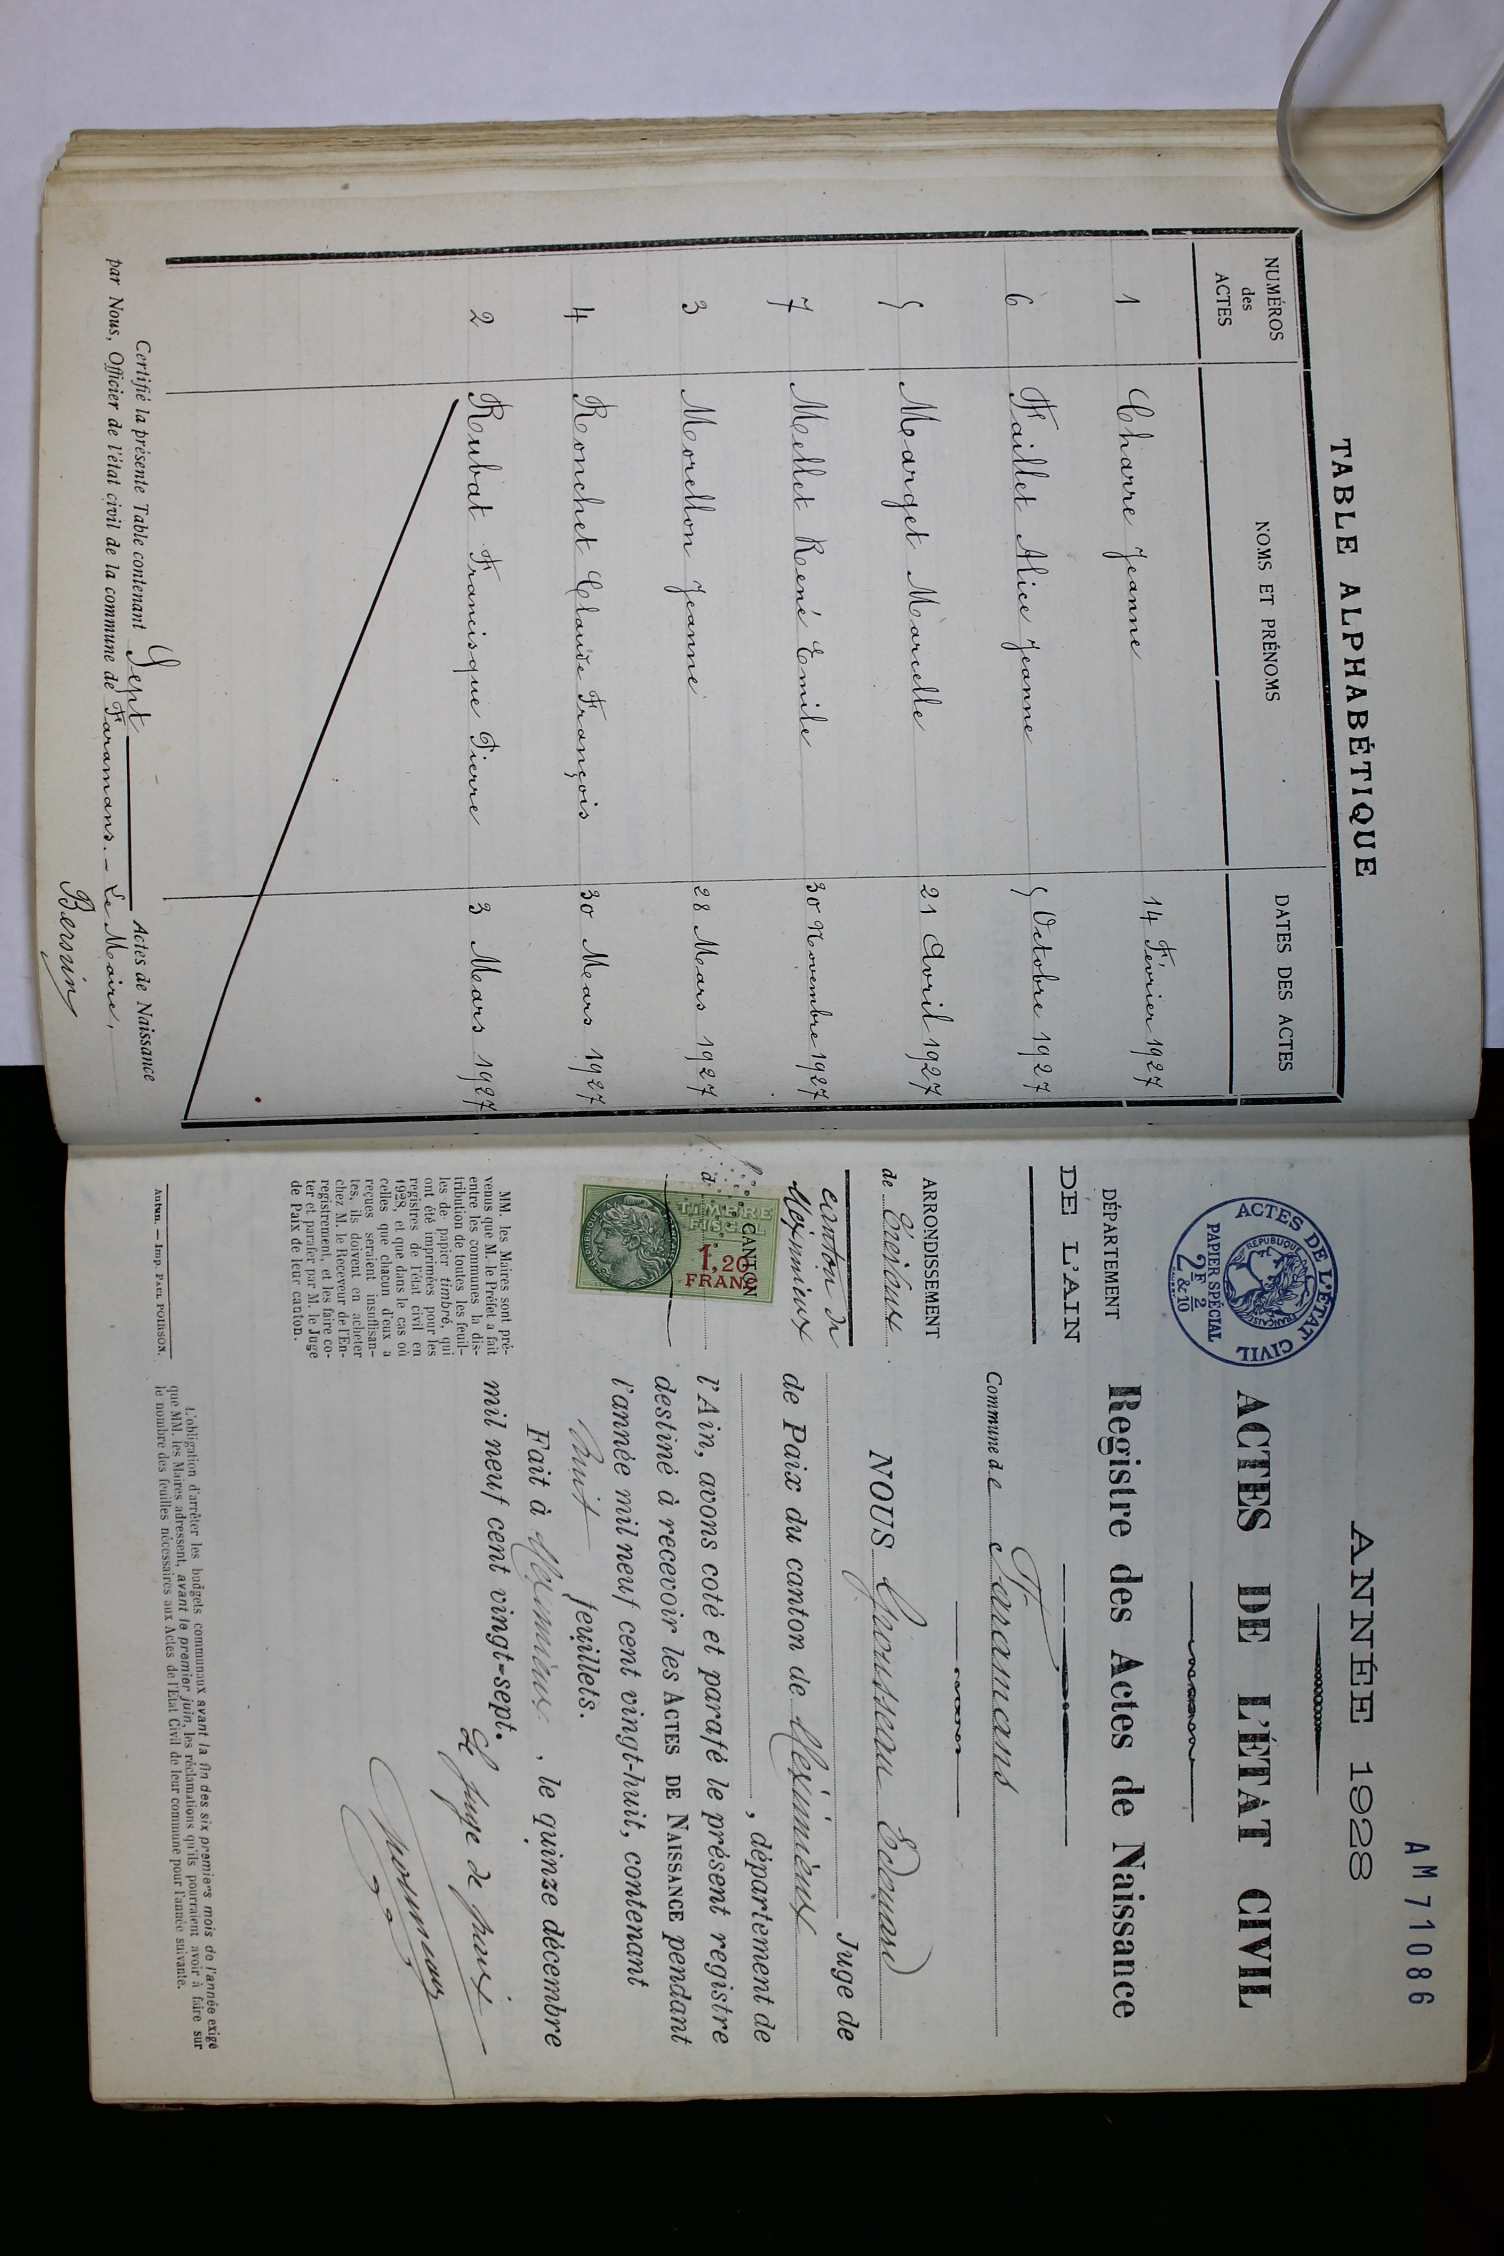 TABLE ALPHABÉTIQUE
NUMÉROS des ACTES NOMS ET PRÉNOMS DATES DES ACTES
1 Charre Jeanne 14 Février 1927
6 Faillet Alice Jeanne 5 Octobre 1927
5 Marget Marcelle 21 Avril 1927
7 Mellet René Emile 30 Novembre 1927
3 Morellon Jeanne 28 Mars 1927
4 Ronchet Claude François 30 Mars 1927
2 Rubat Francisque Pierre 3 Mars 1927
Certifié la présente Table contenant Sept Actes de Naissance
par Nous, Officier de l'état civil de la commune de Faramans. - Le Maire,
Bersin
AM 71086
ANNÉE 1928
ACTES DE L'ÉTAT CIVIL
RÉPUBLIQUE FRANÇAISE
PAPIER SPÉCIAL
2F 2/10 & 10
ACTES DE L'ÉTAT CIVIL
Registre des Actes de Naissance
DÉPARTEMENT
DE L'AIN
ARRONDISSEMENT
de Trévoux
canton de
Meximieux
CANTON
d
TIMBRE
FISCAL
1,20
FRANC
MM. les Maires sont pré-
venus que M. le Préfet a fait
entre les communes la dis-
tribution de toutes les feuil-
les de papier timbré, qui
ont été imprimées pour les
registres de l'état civil en
1928, et que dans le cas où
celles que chacun d'eux a
reçues seraient insuffisan-
tes, ils doivent en acheter
chez M. le Receveur de l'En-
registrement, et les faire co-
ter et parafer par M. le Juge
de Paix de leur canton.
Autun. — Imp. PAUL POIRSON.
Commune de Faramans
NOUS Grousseau Edouard
Juge de
de Paix du canton de Meximieux
, département de
l'Ain, avons coté et parafé le présent registre
destiné à recevoir les ACTES DE NAISSANCE pendant
l'année mil neuf cent vingt-huit, contenant
huit feuillets.
Fait à Meximieux, le quinze décembre
mil neuf cent vingt-sept.
Le juge de paix
L'obligation d'arrêter les budgets communaux avant la fin des six premiers mois de l'année exige
que MM. les Maires adressent, avant le premier juin, les réclamations qu'ils pourraient avoir à faire sur
le nombre des feuilles nécessaires aux Actes de l'Etat Civil de leur commune pour l'année suivante.